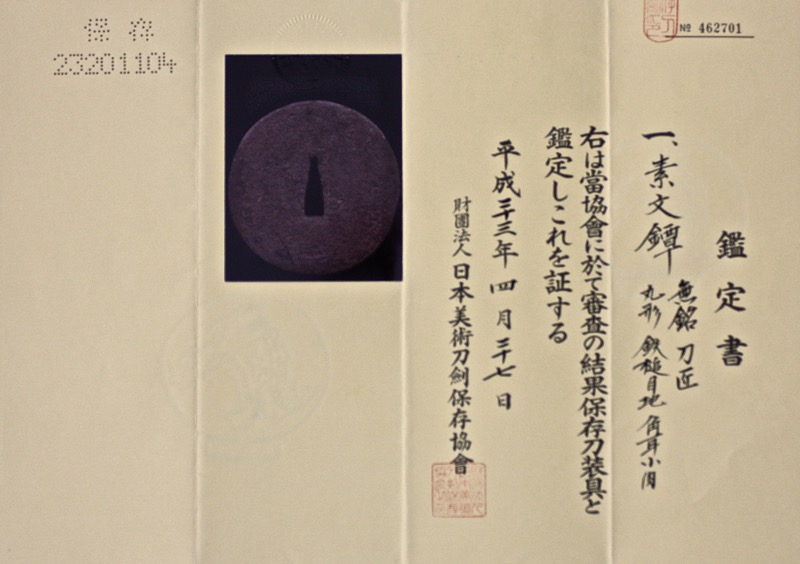 保存
23201104
№ 462701
鑑定書
一、素文鐔 無銘 刀匠
丸形 鉄槌目地 角耳小肉
右は當協會に於て審査の結果保存刀装具と
鑑定しこれを証する
平成二十三年四月二十七日
財團法人 日本美術刀剣保存協會